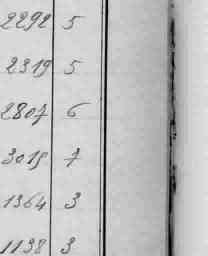 2292 5
2319 5
2807 6
3019 7
1364 3
1138 3